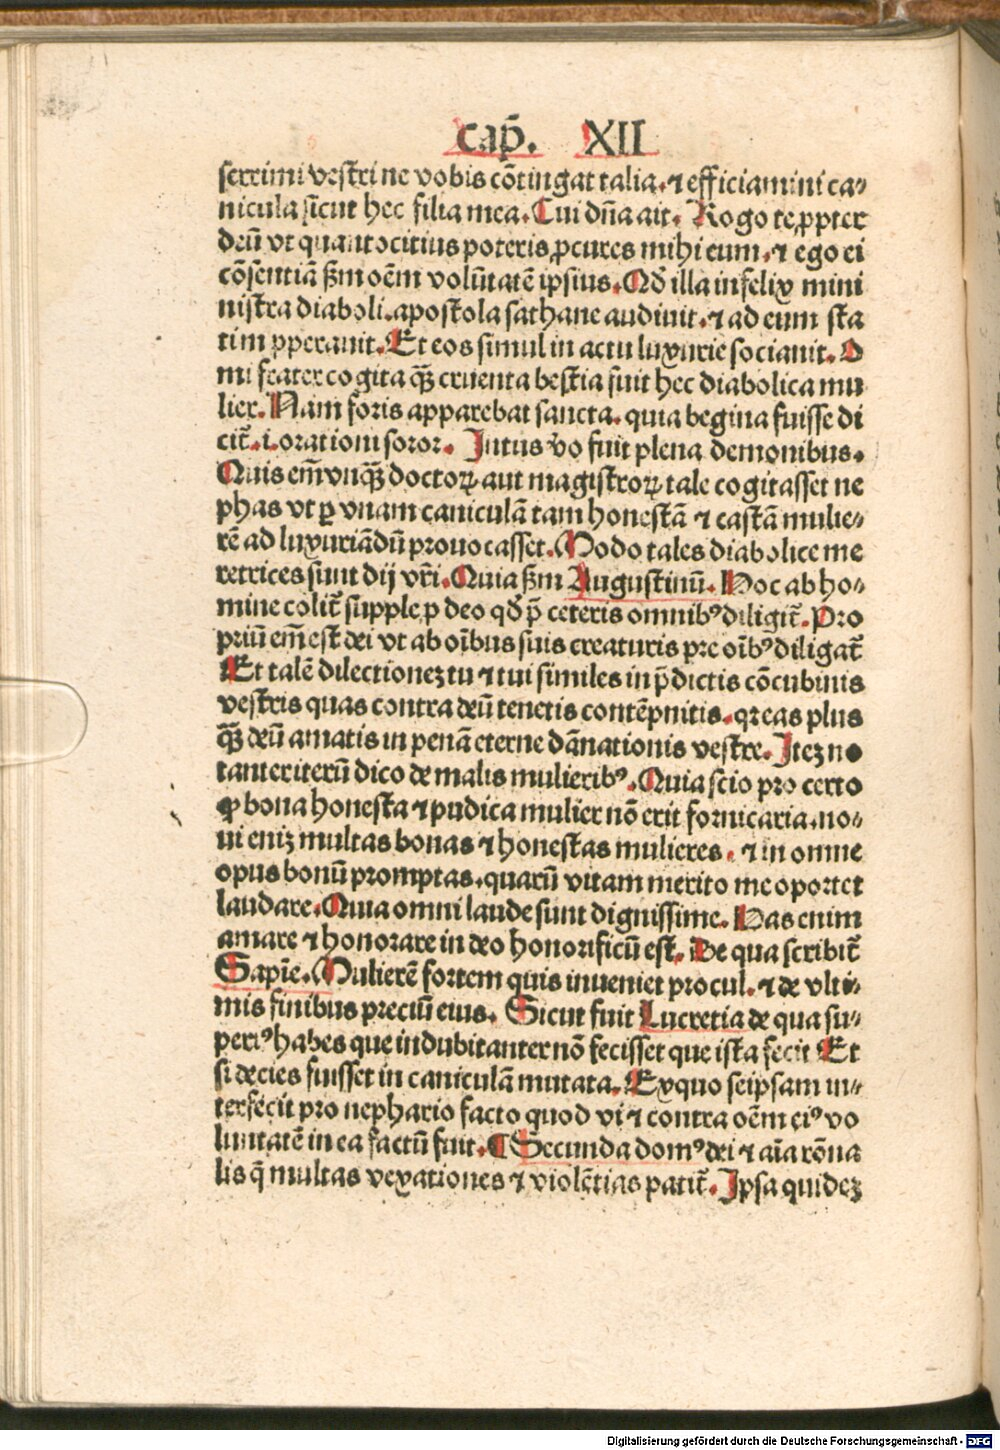 Cap̄. XII
serrimi vestri ne vobis cōtingat talia. ⁊ efficiamini ca⸗
nicula sicut hec filia mea. Cui dn̄a ait. Rogo te ꝓpter
deū vt quantocitius poteris ꝓcures mihi eum. ⁊ ego ei
cōsentiā ẜm oēm volūtatē ipsius. Qd̄ illa infelix mini
nistra diaboli. apostola sathane audiuit. ⁊ ad eum sta
tim ꝓperauit. Et eos simul in actu luxurie sociauit. O
mi frater cogita qꝫ̄ cruenta bestia fuit hec diabolica mu
lier. Nam foris apparebat sancta. quia begina fuisse di
cit̄. i. orationi soror. Intus vo fuit plena demonibus.
Quis em̄ vnqꝫ̄ doctoꝝ aut magistroꝝ tale cogitasset ne
phas vt ꝑ vnam caniculā tam honestā ⁊ castā mulie⸗
rē ad luxuriādū prouocasset. Modo tales diabolice me
retrices sunt dij vr̄i. Quia ẜm Augustinū. Hoc ab ho⸗
mine colit̄ supple ꝑ deo qd̄ p̄ ceteris omnibꝰ diligit̄. Pro
priū em̄ est dei vt ab oībus suis creaturis pre oībꝰ diligat̄
Et talē dilectionez tu ⁊ tui similes in p̄dictis cōcubinis
vestris quas contra deū tenetis contēpnitis. qꝛ eas plus
qꝫ̄ deū amatis in penā eterne dānationis vestre. Itez no
tanter iterū dico de malis mulieribꝰ. Quia scio pro certo
ꝙ bona honesta ⁊ pudica mulier nō erit fornicaria. no⸗
ui eniz multas bonas ⁊ honestas mulieres. ⁊ in omne
opus bonū promptas. quarū vitam merito me oportet
laudare. Quia omni laude sunt dignissime. Has enim
amare ⁊ honorare in deo honorificū est. De qua scribit̄
Sapiē. Mulierē fortem quis inueniet procul. ⁊ de vlti⸗
mis finibus preciū eius. Sicut fuit Lucretia de qua su⸗
periꝰ habes que indubitanter nō fecisset que ista fecit Et
si decies fuisset in caniculā mutata. Exquo seipsam in⸗
terfecit pro nephario facto quod vi ⁊ contra oēm eiꝰ vo
luntatē in ea factū fuit. ¶ Secunda domꝰ dei ⁊ aīa rōna
lis q̄ multas vexationes ⁊ violētias patit̄. Ipsa quidez
Digitalisierung gefördert durch die Deutsche Forschungsgemeinschaft - DFG